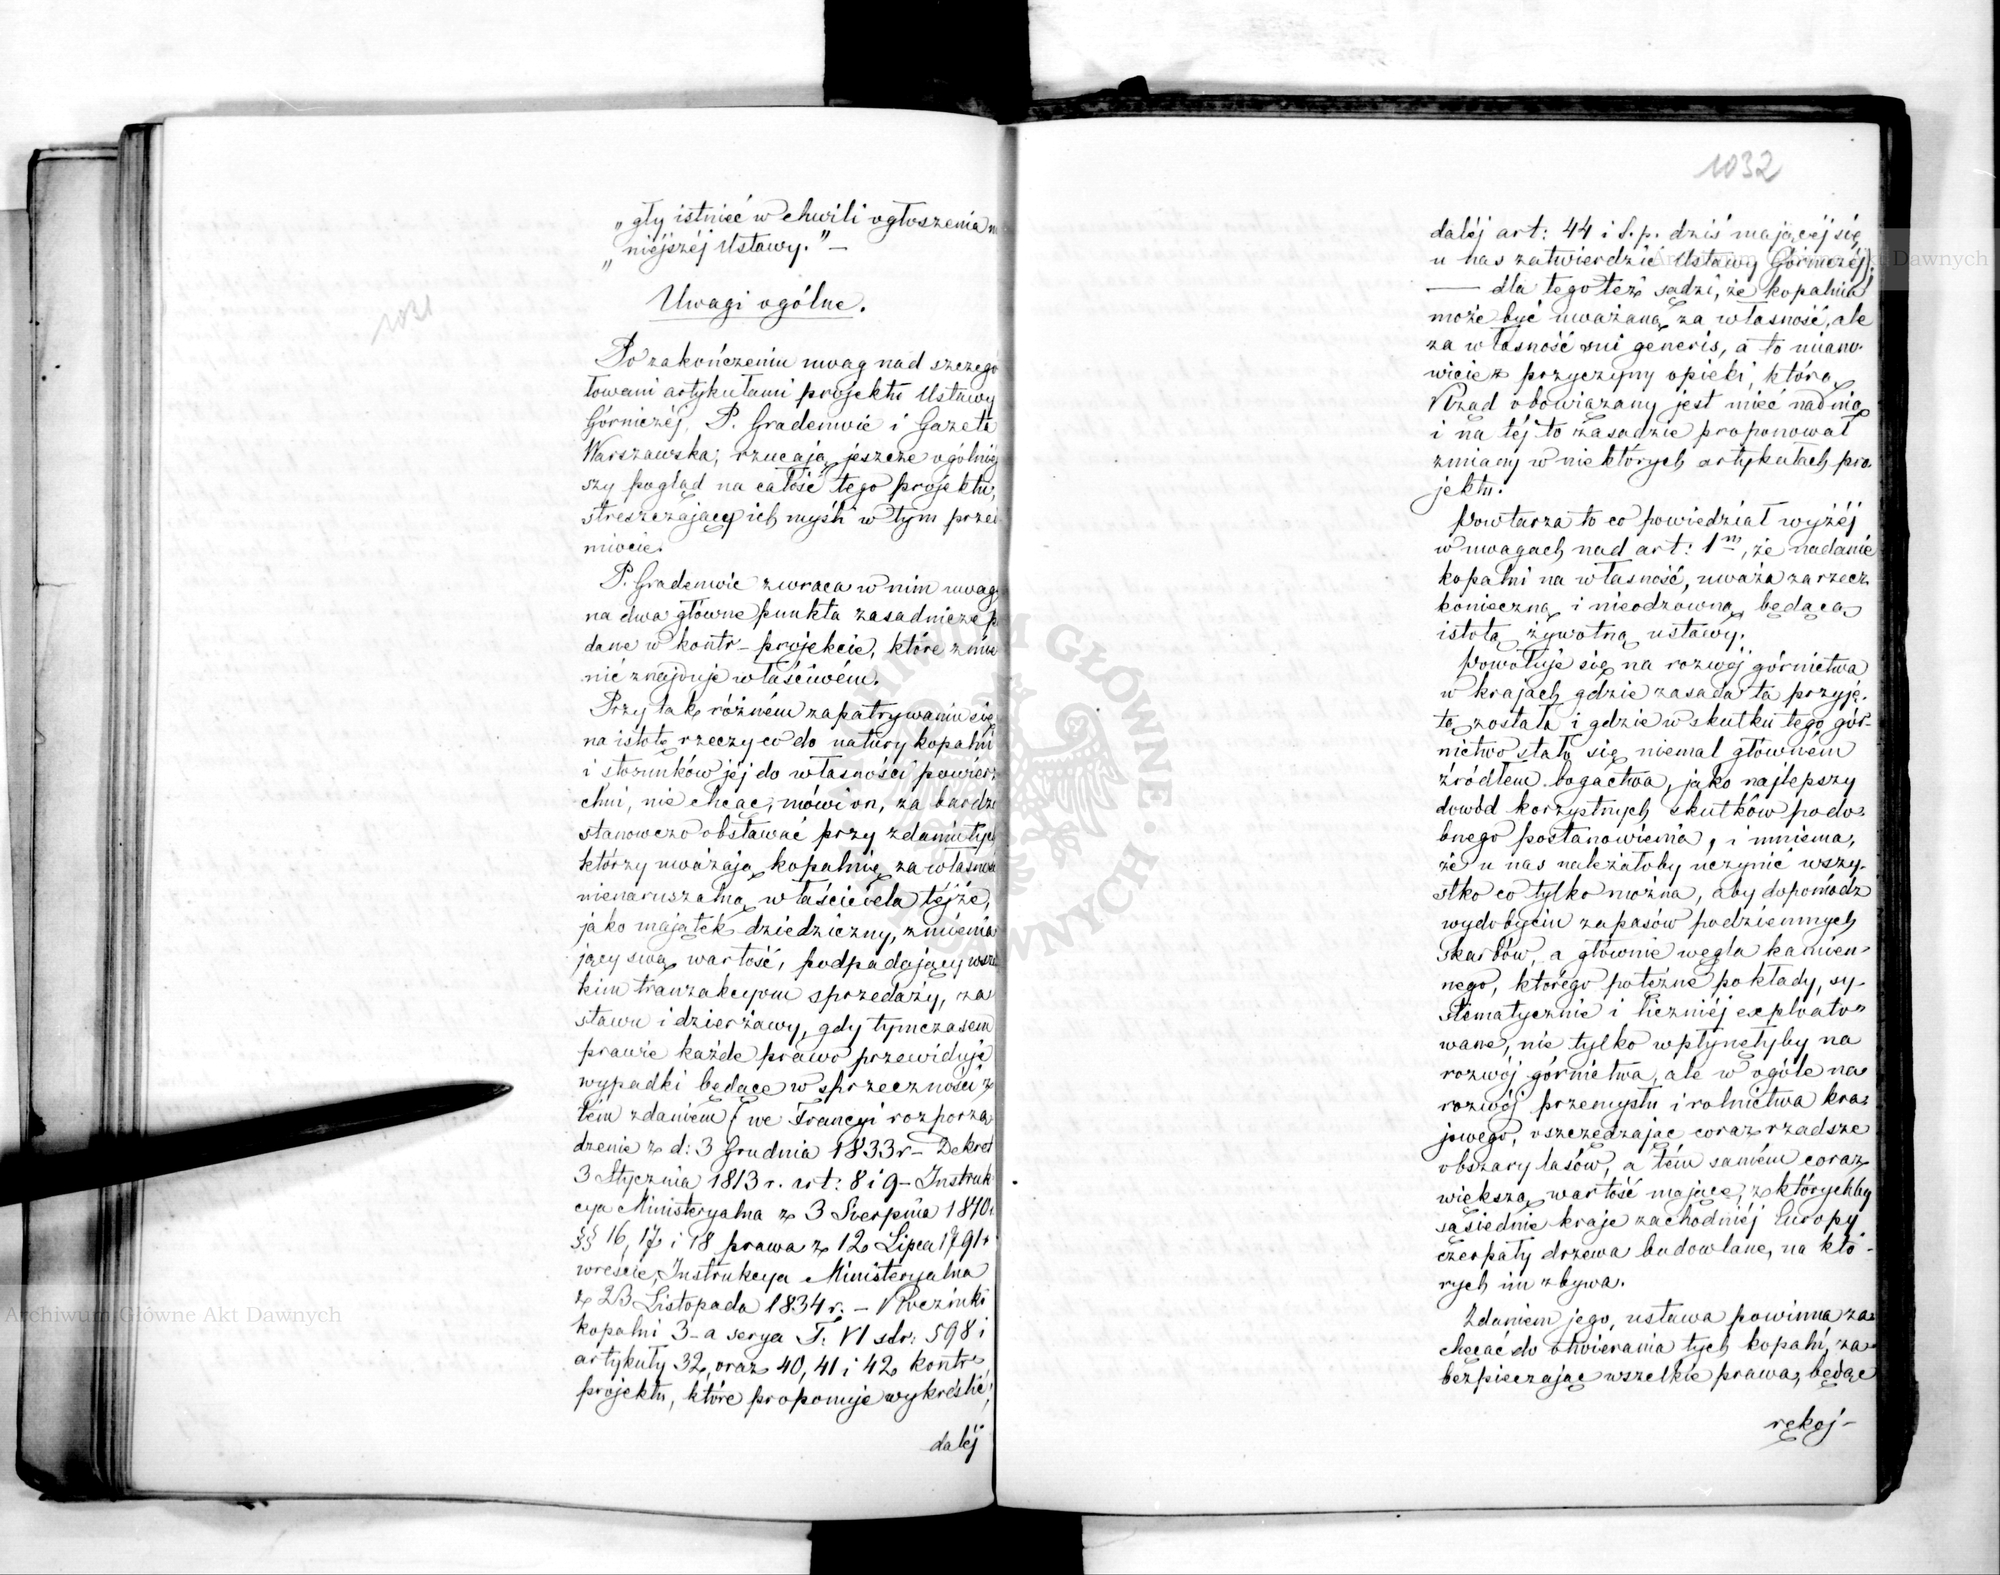 „gły istnieć w chwili ogłoszenia
„niejszéj Ustawy.” —
Uwagi ogólne.
1031
Po zakończeniu uwag nad szczegó
łowemi artykułami projektu Ustawy
Górniczéj, P. Gradenwic i Gazeta
Warszawska, rzucają jeszcze ogólniej
szy pogląd na całość tego projektu,
streszczający ich myśli w tym przed
miocie.
P. Gradenwic zwraca w nim uwagę
na dwa główne punkta zasadnicze po
dane w kontr-projekcie, które zmie
nić znajduje właściwém.
Przy tak różném zapatrywaniu się
na istotę rzeczy co do natury kopalni
i stosunków jéj do własności powierz
chni, nie chcąc, mówi on, za bardzo
stanowczo obstawać przy zdaniu tych
którzy uważają kopalnię za własność
nienaruszalną właściciela téjże,
jako majątek dziedziczny, zmienia
jący swą wartość, podpadający wszel
kim tranzakcyom sprzedaży, za
stawu i dzierżawy, gdy tymczasem
prawie każde prawo przewiduje
wypadki będące w sprzeczności z
tem zdaniem (we Francyi rozporzą
dzenie z d: 3 Grudnia 1833 r – Dekret
3 Stycznia 1813 r. art: 8 i 9 – Instruk
cya Ministeryalna z 3 Sierpnia 1810 r
§§ 16, 17 i 18 prawa z 12 Lipca 1791 r
wreście, Instrukcya Ministeryalna
z 23 Listopada 1834 r. – Roczniki
kopalni 3-a serya T. VI str: 598 i
artykuły 32, oraz 40, 41 i 42 kontr-
projektu, które proponuje wykreślić,
daléj
1032
daléj art: 44 i t.p. dziś mającéj się
u nas zatwierdzić Ustawy Górniczéj,
— dla tego też sądzi, że kopalnia
może być uważaną za własność, ale
za własność sui generis, a to miano-
wicie z przyczyny opieki, którą
Rząd obowiązany jest mieć nad nią
i na téj to zasadzie proponował
zmiany w niektórych artykułach pro-
jektu.
Powtarza to co powiedział wyżéj
w uwagach nad art: 1m, że nadanie
kopalni na własność, uważa za rzecz
konieczną i nieodzowną, będącą
istotą żywotną ustawy.
Powołuje się na rozwój górnictwa
w krajach, gdzie zasada ta przyję-
tą została i gdzie w skutku tego gór-
nictwo stało się niemal główném
źródłem bogactwa, jako najlepszy
dowód korzystnych skutków podo-
bnego postanowienia, i mniema,
że u nas należałoby uczynić wszy-
stko co tylko można, aby dopomódz
wydobyciu zapasów podziemnych
skarbów, a głównie węgla kamien-
nego, którego potężne pokłady, sy-
stematycznie i liczniéj exploato-
wane, nie tylko wpłynęłyby na
rozwój górnictwa, ale w ogóle na
rozwój przemysłu i rolnictwa kra-
jowego, oszczędzając coraz rzadsze
obszary lasów, a tém samém coraz
większą wartość mające, z którychby
sąsiednie kraje zachodniéj Europy
czerpały drzewa budowlane, na któ-
rych im zbywa.
Zdaniem jego, ustawa powinna za-
chęcać do otwierania tych kopalń, za-
bezpieczając wszelkie prawa, będące
rękoj-
Archiwum Główne Akt Dawnych
Archiwum Główne Akt Dawnych
ARCHIWUM GŁÓWNE AKT DAWNYCH